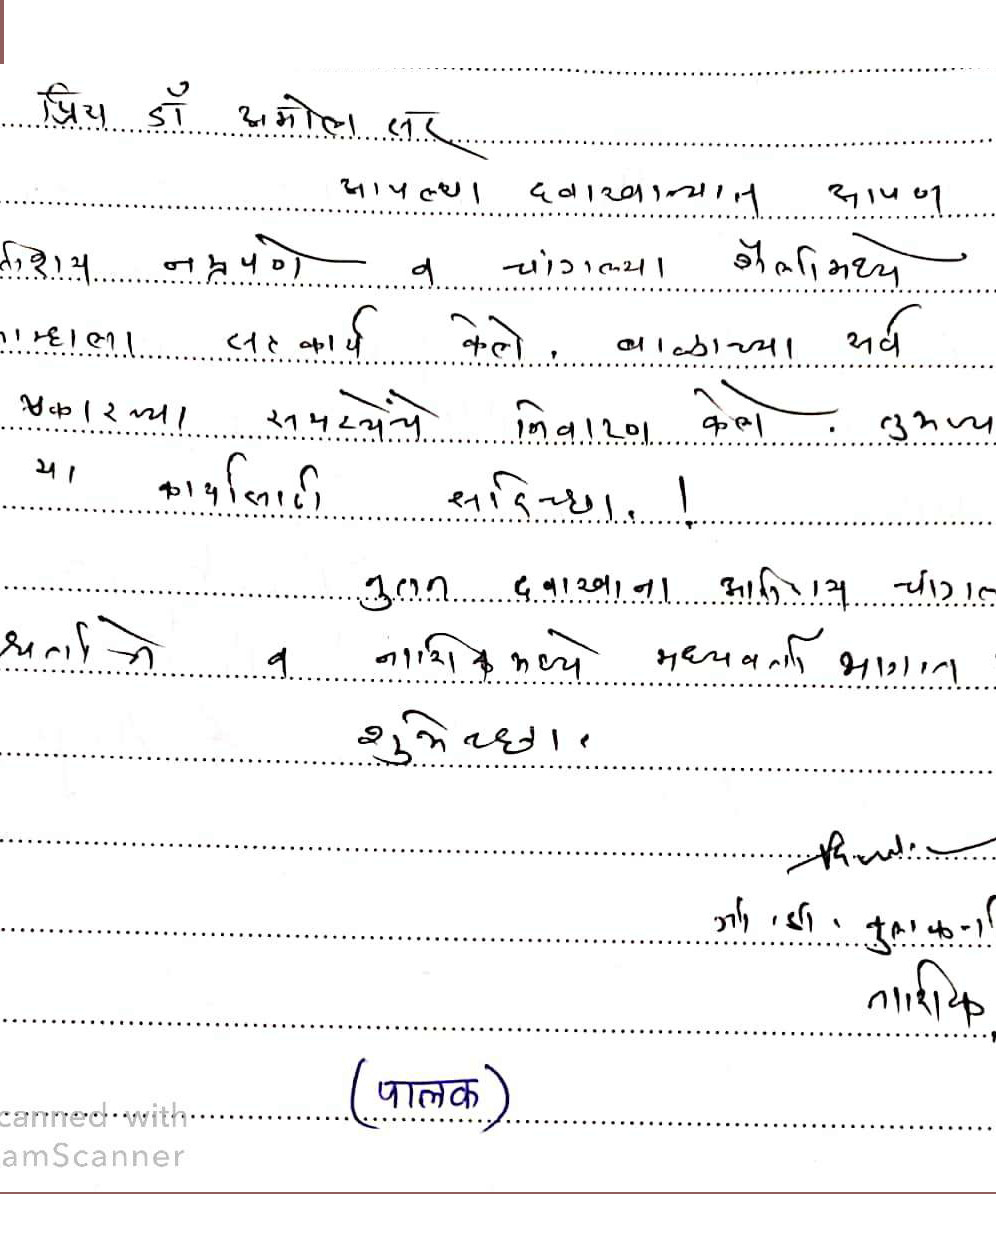 प्रिय डॉ अमोल सर
आपल्या दवाखान्यात आपण
तिशय नम्रपणे व चांगल्या शैलीमध्ये
म्हाला सहकार्य केले. बाळाच्या सर्व
प्रकारच्या समस्येंचे निवारण केले. तुमच्या
या कार्यासाठी सदिच्छा. !
नुतन दवाखाना अतिशय चांगल
व नाशिकमध्ये मध्यवर्ती भागात
शुभेच्छा.
नाशिक.
(पालक)
canned with
amScanner